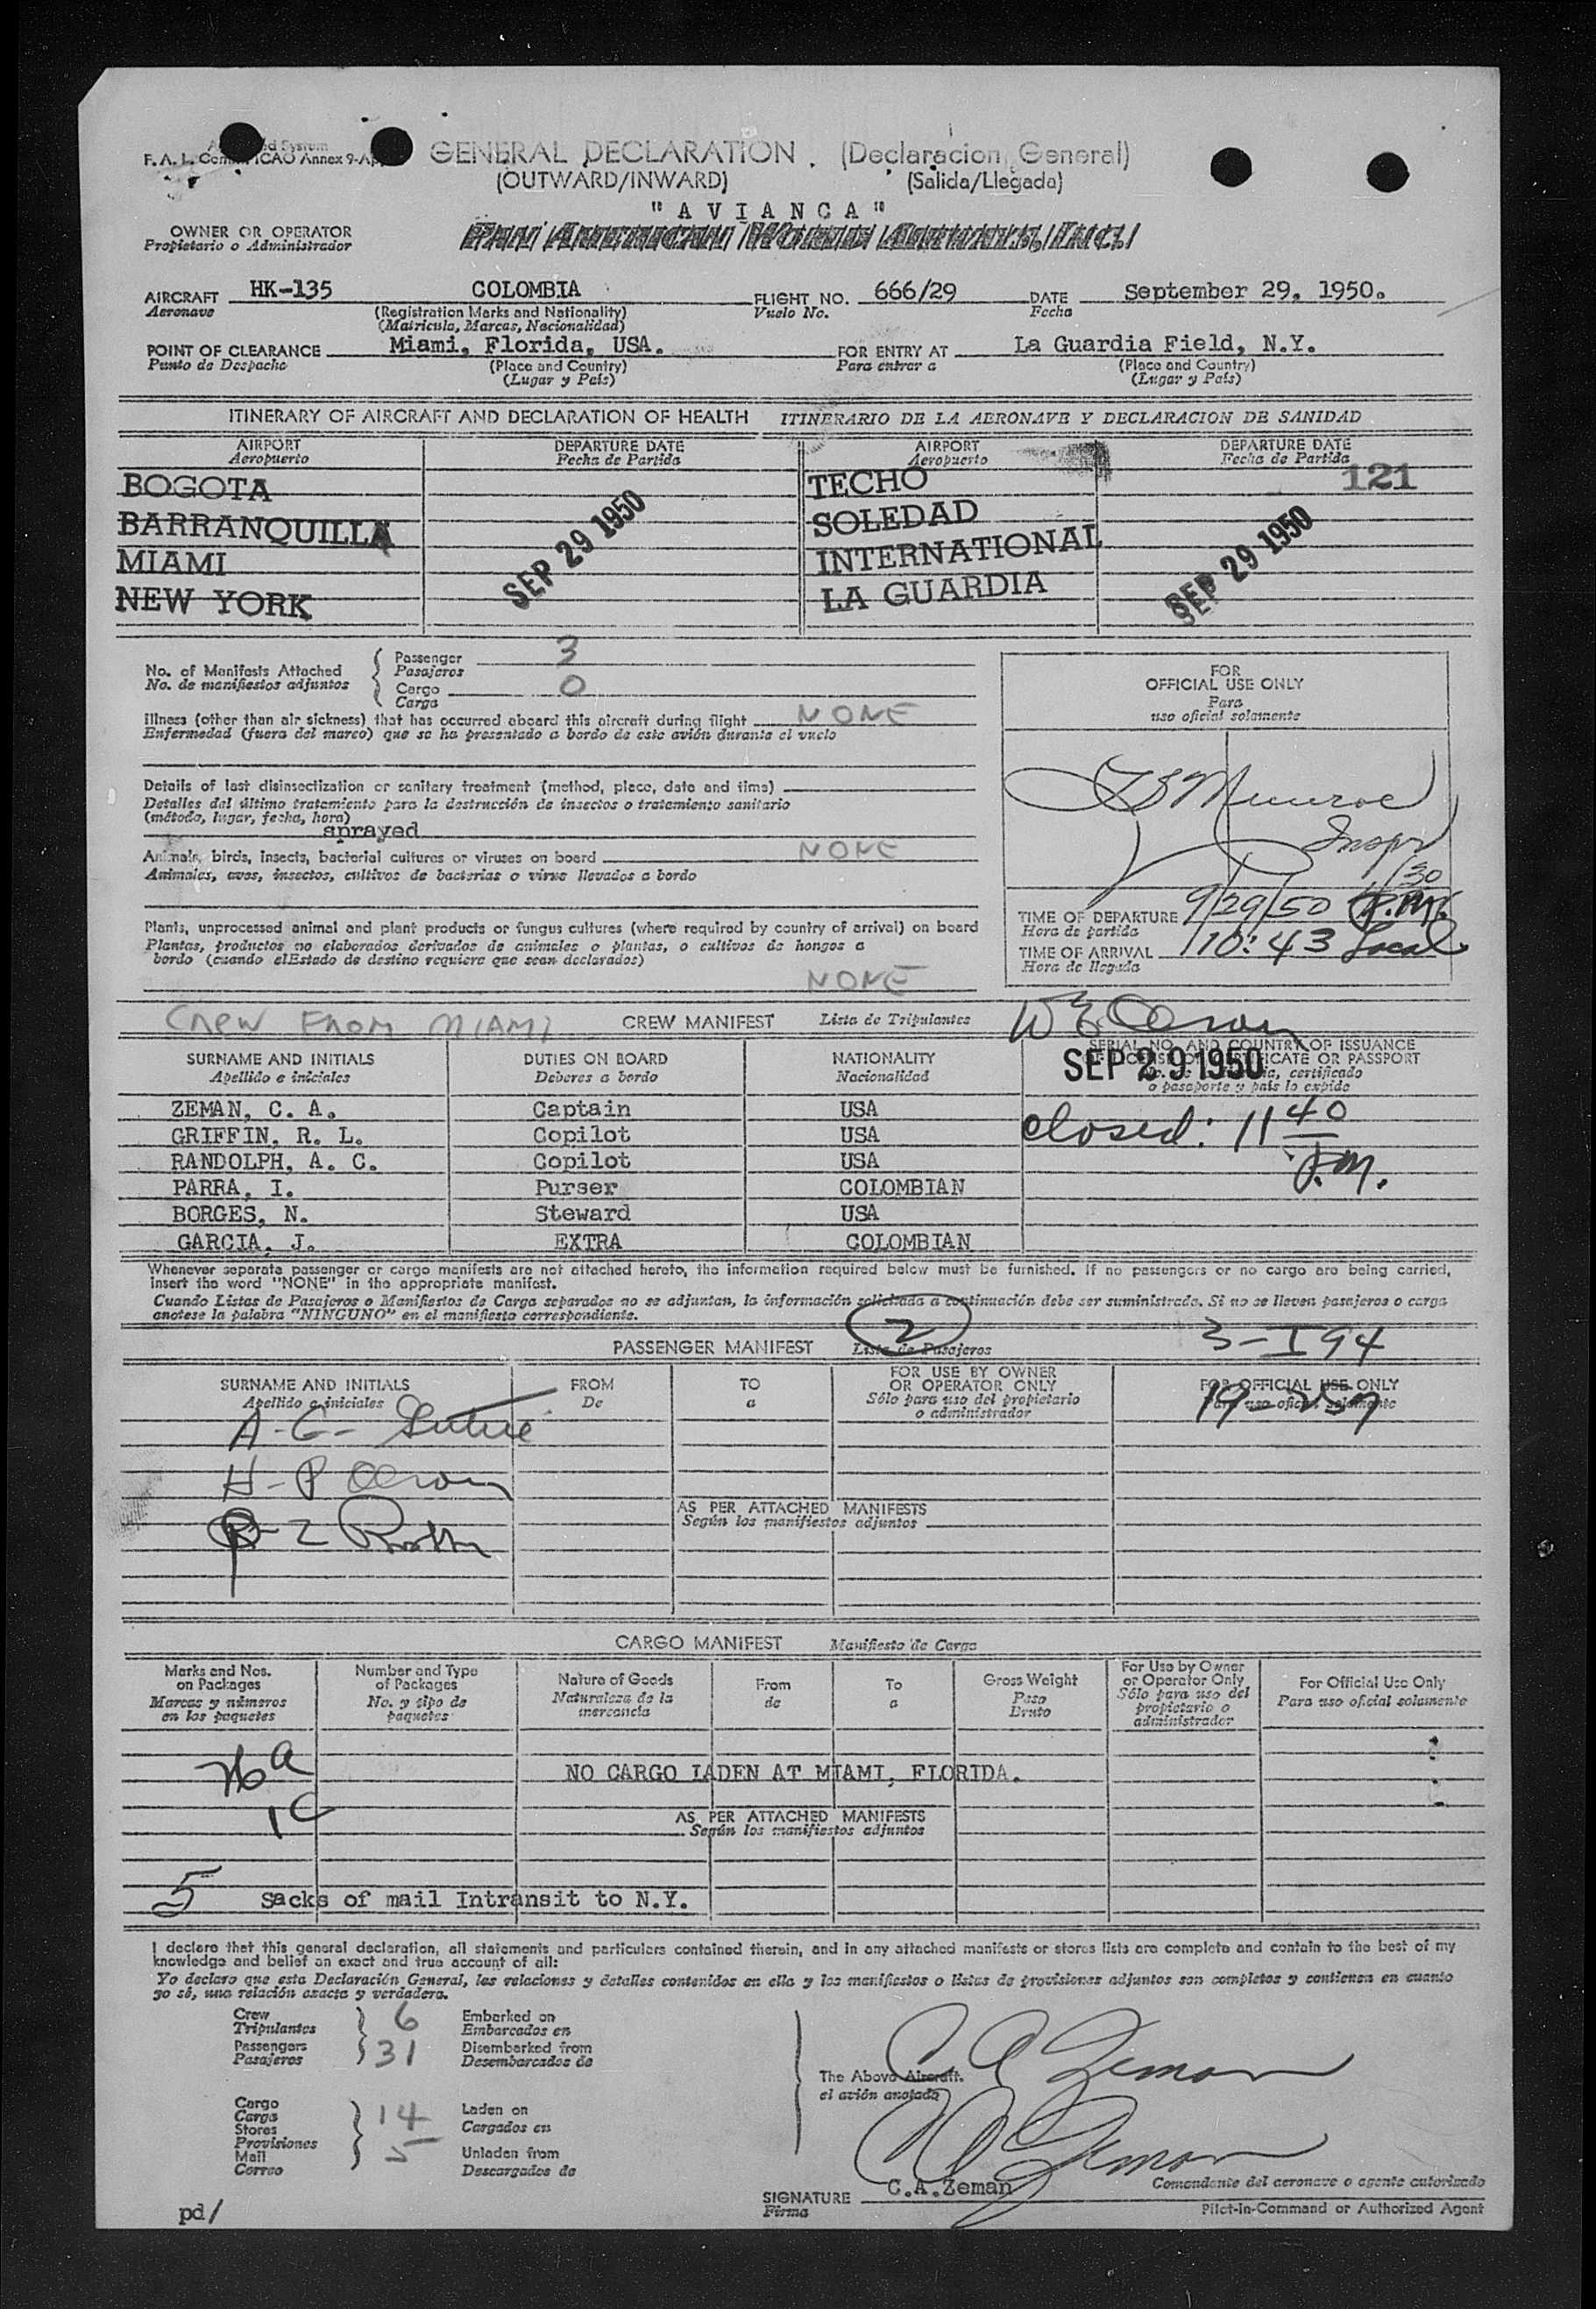 F. A. L. Com ICAO Annex 9-Ap
GENERAL DECLARATION . (Declaracion General)
(OUTWARD/INWARD) (Salida/Llegada)
"AVIANCA"
OWNER OR OPERATOR
Propietario o Administrador
PAN AMERICAN WORLD AIRWAYS, INC.
AIRCRAFT HK-135 COLOMBIA FLIGHT NO. 666/29 DATE September 29, 1950.
Aeronave (Registration Marks and Nationality) Vuelo No. Fecha
(Matricula, Marcas, Nacionalidad)
POINT OF CLEARANCE Miami, Florida, USA. FOR ENTRY AT La Guardia Field, N.Y.
Punto de Despacho (Place and Country) Para entrar a (Place and Country)
(Lugar y País) (Lugar y País)
ITINERARY OF AIRCRAFT AND DECLARATION OF HEALTH ITINERARIO DE LA AERONAVE Y DECLARACION DE SANIDAD
AIRPORT DEPARTURE DATE AIRPORT DEPARTURE DATE
Aeropuerto Fecha de Partida Aeropuerto Fecha de Partida
121
BOGOTA TECHO
BARRANQUILLA SEP 29 1950 SOLEDAD SEP 29 1950
MIAMI INTERNATIONAL
NEW YORK LA GUARDIA
No. of Manifests Attached Passenger 3
No. de manifiestos adjuntos Pasajeros
Cargo 0
Carga
FOR
OFFICIAL USE ONLY
Para
uso oficial solamente
Illness (other than air sickness) that has occurred aboard this aircraft during flight NONE
Enfermedad (fuera del mareo) que se ha presentado a bordo de este avión durante el vuelo
Details of last disinsectization or sanitary treatment (method, place, date and time)
Detalles del último tratamiento para la destrucción de insectos o tratamiento sanitario
(método, lugar, fecha, hora)
sprayed
Munroe
Inspr
Animals, birds, insects, bacterial cultures or viruses on board NONE
Animales, aves, insectos, cultivos de bacterias o virus llevados a bordo
1/30
TIME OF DEPARTURE 9/29/50 P.M.
Hora de partida
TIME OF ARRIVAL 10:43 Local
Hora de llegada
Plants, unprocessed animal and plant products or fungus cultures (where required by country of arrival) on board
Plantas, productos no elaborados derivados de animales o plantas, o cultivos de hongos a
bordo (cuando elEstado de destino requiere que sean declarados)
NONE
Crew From MIAMI CREW MANIFEST Lista de Tripulantes
SURNAME AND INITIALS DUTIES ON BOARD NATIONALITY SERIAL NO. AND COUNTRY OF ISSUANCE
Apellido e iniciales Deberes a bordo Nacionalidad CERTIFICATE OR PASSPORT
certificado
o pasaporte y país lo expide
SEP 29 1950
ZEMAN, C. A. Captain USA
GRIFFIN, R. L. Copilot USA
RANDOLPH, A. C. Copilot USA
PARRA, I. Purser COLOMBIAN
BORGES, N. Steward USA
GARCIA, J. EXTRA COLOMBIAN
closed: 11 40
P.M.
Whenever separate passenger or cargo manifests are not attached hereto, the information required below must be furnished. If no passengers or no cargo are being carried,
insert the word "NONE" in the appropriate manifest.
Cuando Listas de Pasajeros o Manifiestos de Carga separados no se adjuntan, la información solicitada a continuación debe ser suministrada. Si no se lleven pasajeros o carga
anotese la palabra "NINGUNO" en el manifiesto correspondiente.
PASSENGER MANIFEST 2 Lista de Pasajeros 3-I94
SURNAME AND INITIALS FROM TO FOR USE BY OWNER FOR OFFICIAL USE ONLY
Apellido e iniciales De a OR OPERATOR ONLY Para uso oficial solamente
Sólo para uso del propietario
o administrador
A-G-
H-P
AS PER ATTACHED MANIFESTS
Según los manifiestos adjuntos
CARGO MANIFEST Manifiesto de Carga
Marks and Nos. Number and Type Nature of Goods From To Gross Weight For Use by Owner For Official Use Only
on Packages of Packages Naturaleza de la de a Peso or Operator Only Para uso oficial solamente
Marcas y números No. y tipo de mercancía Bruto Sólo para uso del
en los paquetes paquetes propietario o
administrador
NO CARGO LADEN AT MIAMI, FLORIDA.
1C
AS PER ATTACHED MANIFESTS
Según los manifiestos adjuntos
5 sacks of mail Intransit to N.Y.
I declare that this general declaration, all statements and particulars contained therein, and in any attached manifests or stores lists are complete and contain to the best of my
knowledge and belief an exact and true account of all:
Yo declaro que esta Declaración General, las relaciones y detalles contenidos en ella y los manifiestos o listas de provisiones adjuntos son completos y contienen en cuanto
yo sé, una relación exacta y verdadera.
Crew 6 Embarked on
Tripulantes Embarcados en
Passengers 31 Disembarked from
Pasajeros Desembarcados de
The Above Aircraft.
el avión anotado
C A Zeman
Cargo
Carga 14 Laden on
Stores Cargados en
Provisiones
Mail 5 Unladen from
Correo Descargados de
C A Zeman
C.A.Zeman
SIGNATURE Comandante del aeronave o agente autorizado
Firma Pilot-in-Command or Authorized Agent
pd/